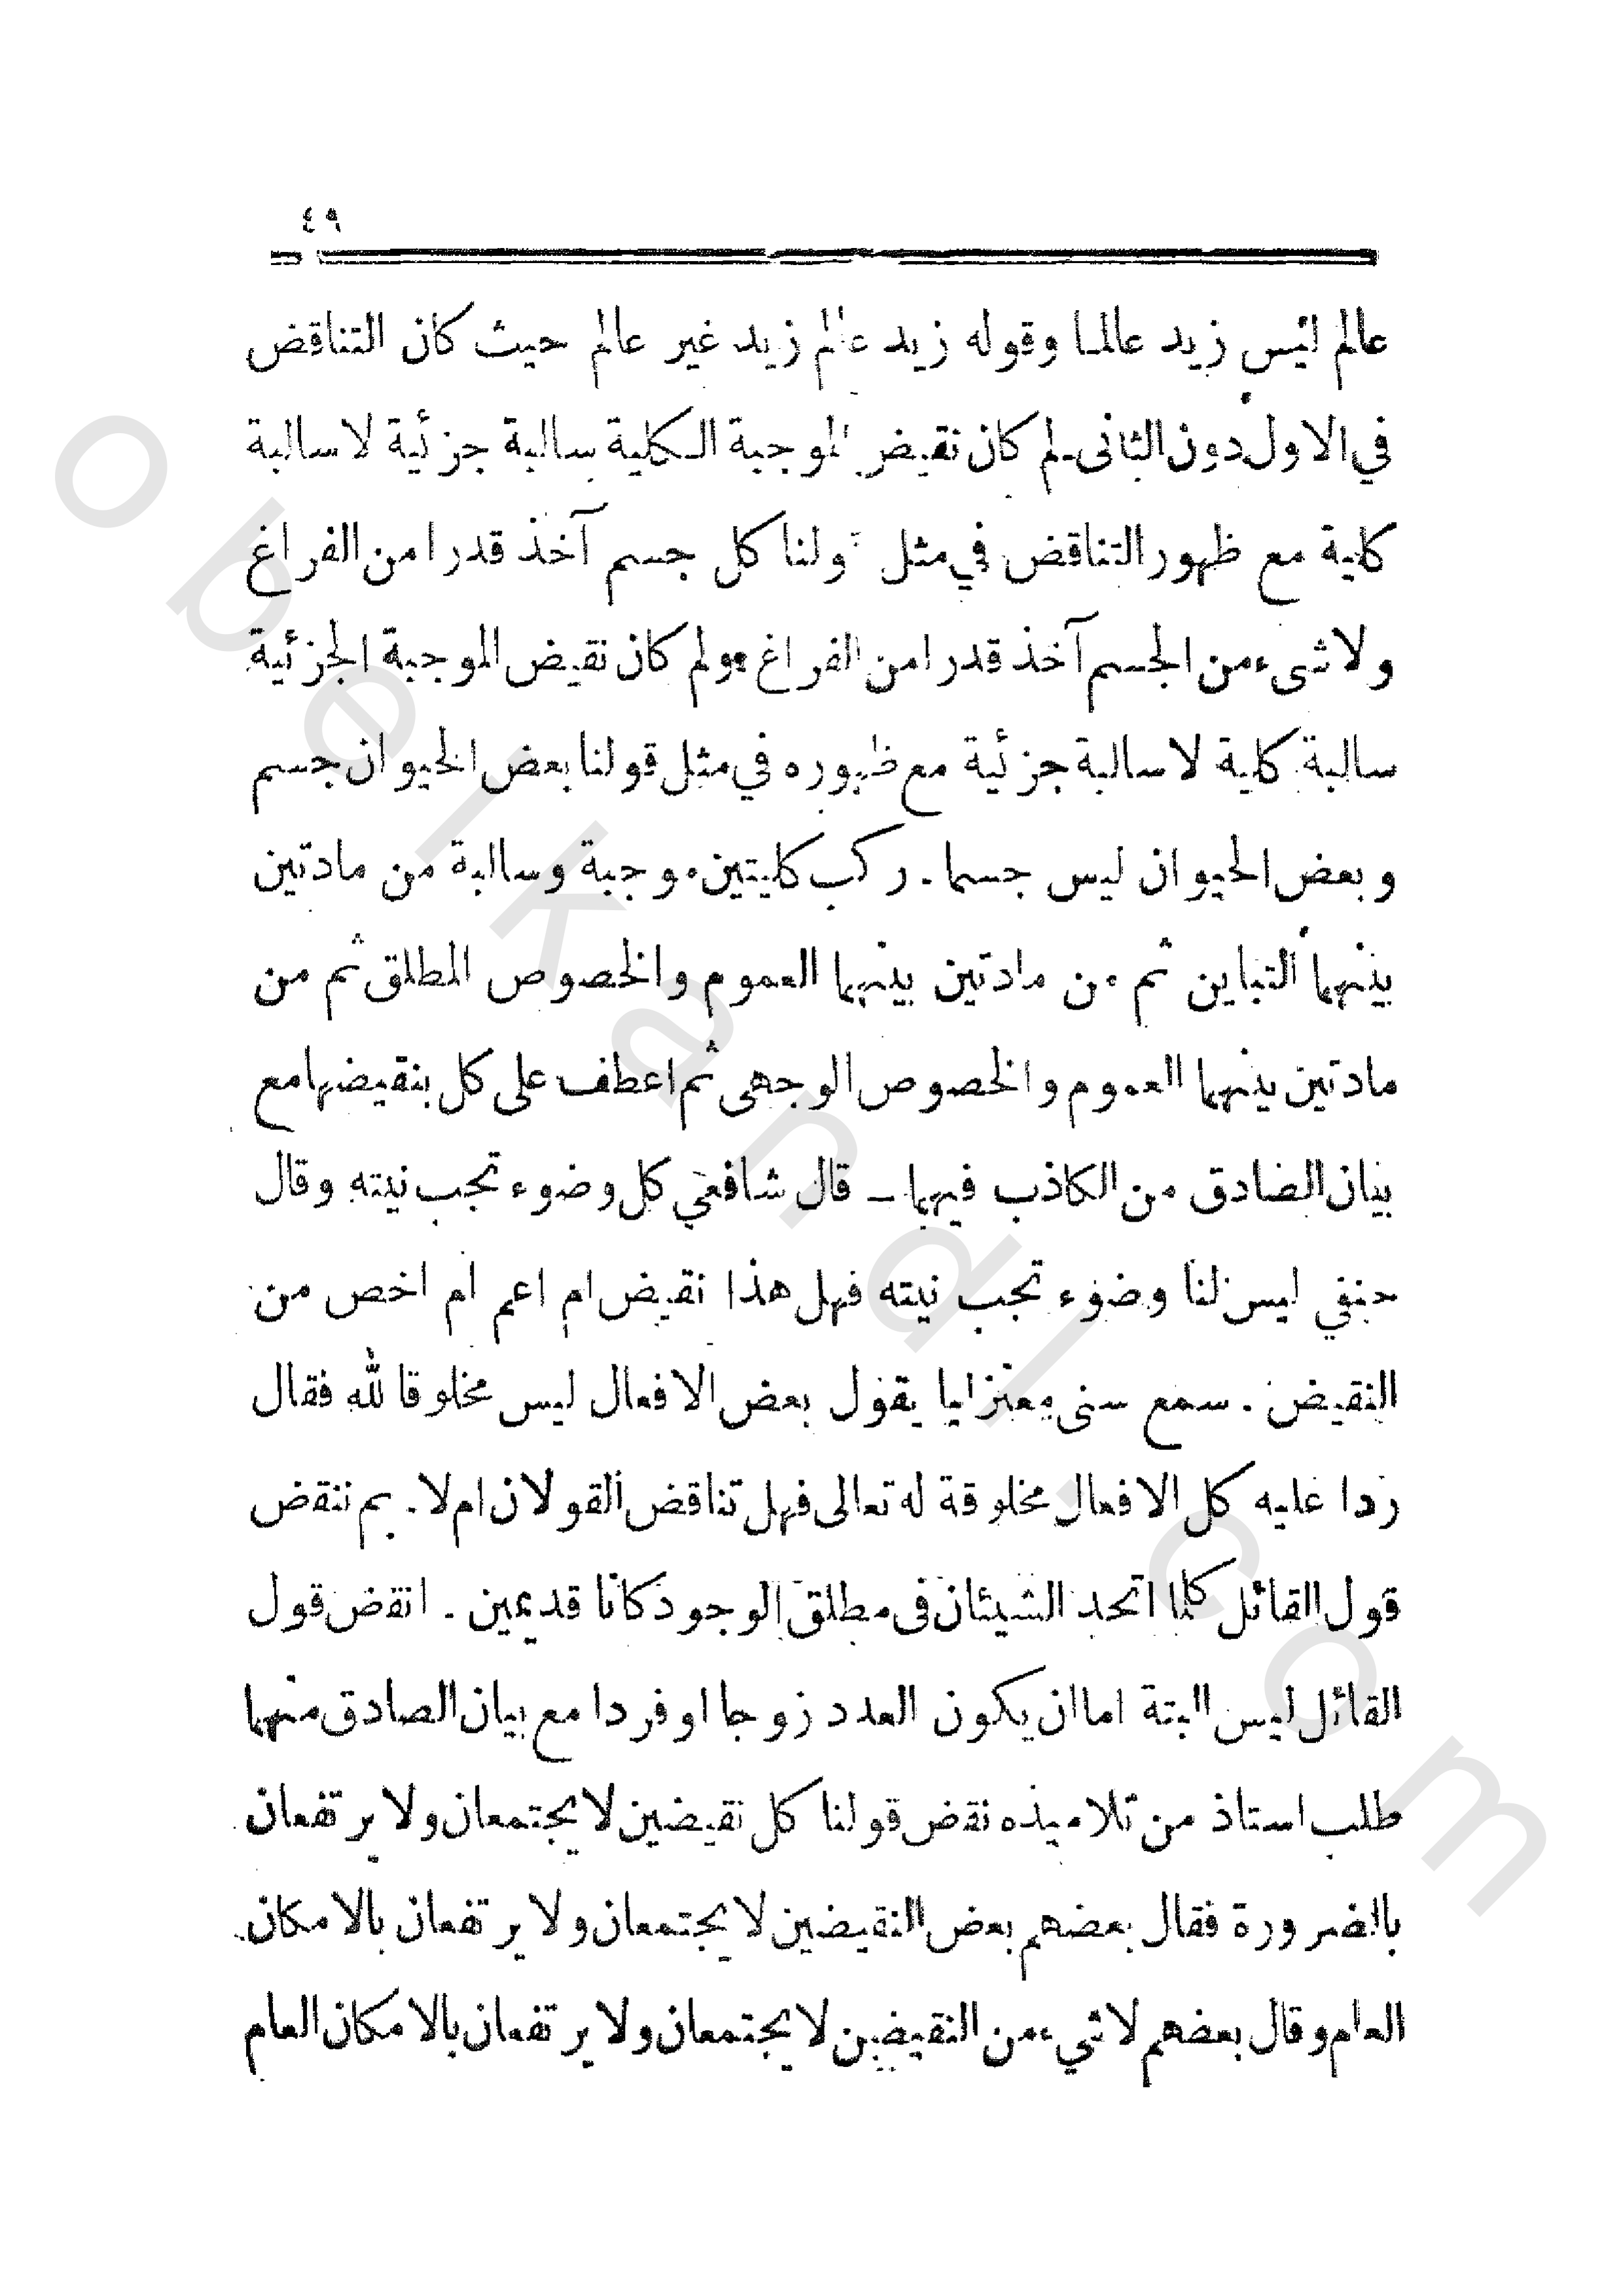 ٤٩
عالم ليس زيد عالما وقوله زيد عالم زيد غير عالم حيث كان التناقض
في الاول دون الثانى . لم كان نقيض الموجبة الكلية سالبة جزئية لا سالبة
كلية مع ظهور التناقض في مثل قولنا كل جسم آخذ قدرا من الفراغ
ولا شىء من الجسم آخذ قدرا من الفراغ • ولم كان نقيض الموجبة الجزئية
سالبة كلية لا سالبة جزئية مع ظهوره في مثل قولنا بعض الحيوان جسم
وبعض الحيوان ليس جسما . ركب كليتين موجبة وسالبة من مادتين
بينهما التباين ثم من مادتين بينهما العموم والخصوص المطلق ثم من
مادتين بينهما العموم والخصوص الوجهى ثم اعطف على كل بنقيضها مع
بيان الصادق من الكاذب فيهما ـ قال شافعي كل وضوء تجب نيته وقال
حنفي ليس لنا وضوء تجب نيته فهل هذا نقيض ام اعم ام اخص من
النقيض . سمع سنى معتزليا يقول بعض الافعال ليس مخلوقا لله فقال
ردا عليه كل الافعال مخلوقة له تعالى فهل تناقض القولان ام لا . بم ننقض
قول القائل كلما اتحد الشيئان فى مطلق الوجود كانا قديمين . انقض قول
القائل ليس البتة اما ان يكون العدد زوجا او فردا مع بيان الصادق منهما
طلب استاذ من تلاميذه نقض قولنا كل نقيضين لا يجتمعان ولا يرتفعان
بالضرورة فقال بعضهم بعض النقيضين لا يجتمعان ولا يرتفعان بالامكان
العام وقال بعضهم لا شيء من النقيضين لا يجتمعان ولا يرتفعان بالامكان العام
obeikandl.com